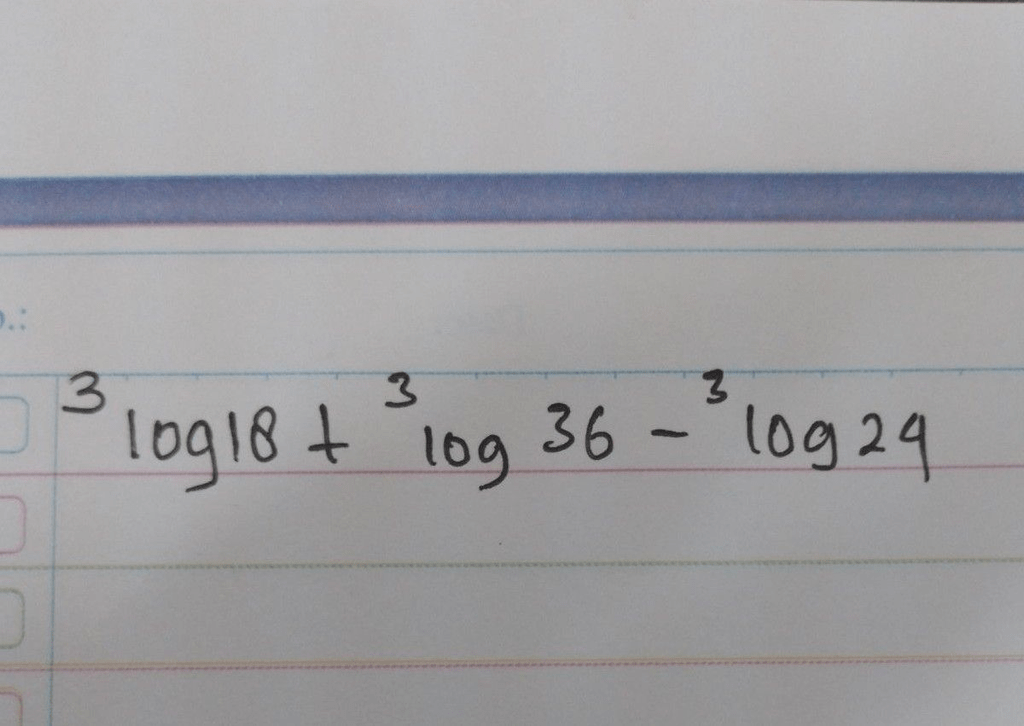 .:
³log18 + ³log 36 - ³log 24